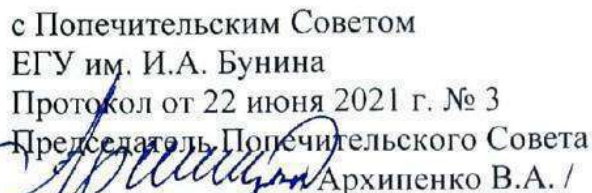 с Попечительским Советом
ЕГУ им. И.А. Бунина
Протокол от 22 июня 2021 г. № 3
Председатель Попечительского Совета
Архипенко В.А. /